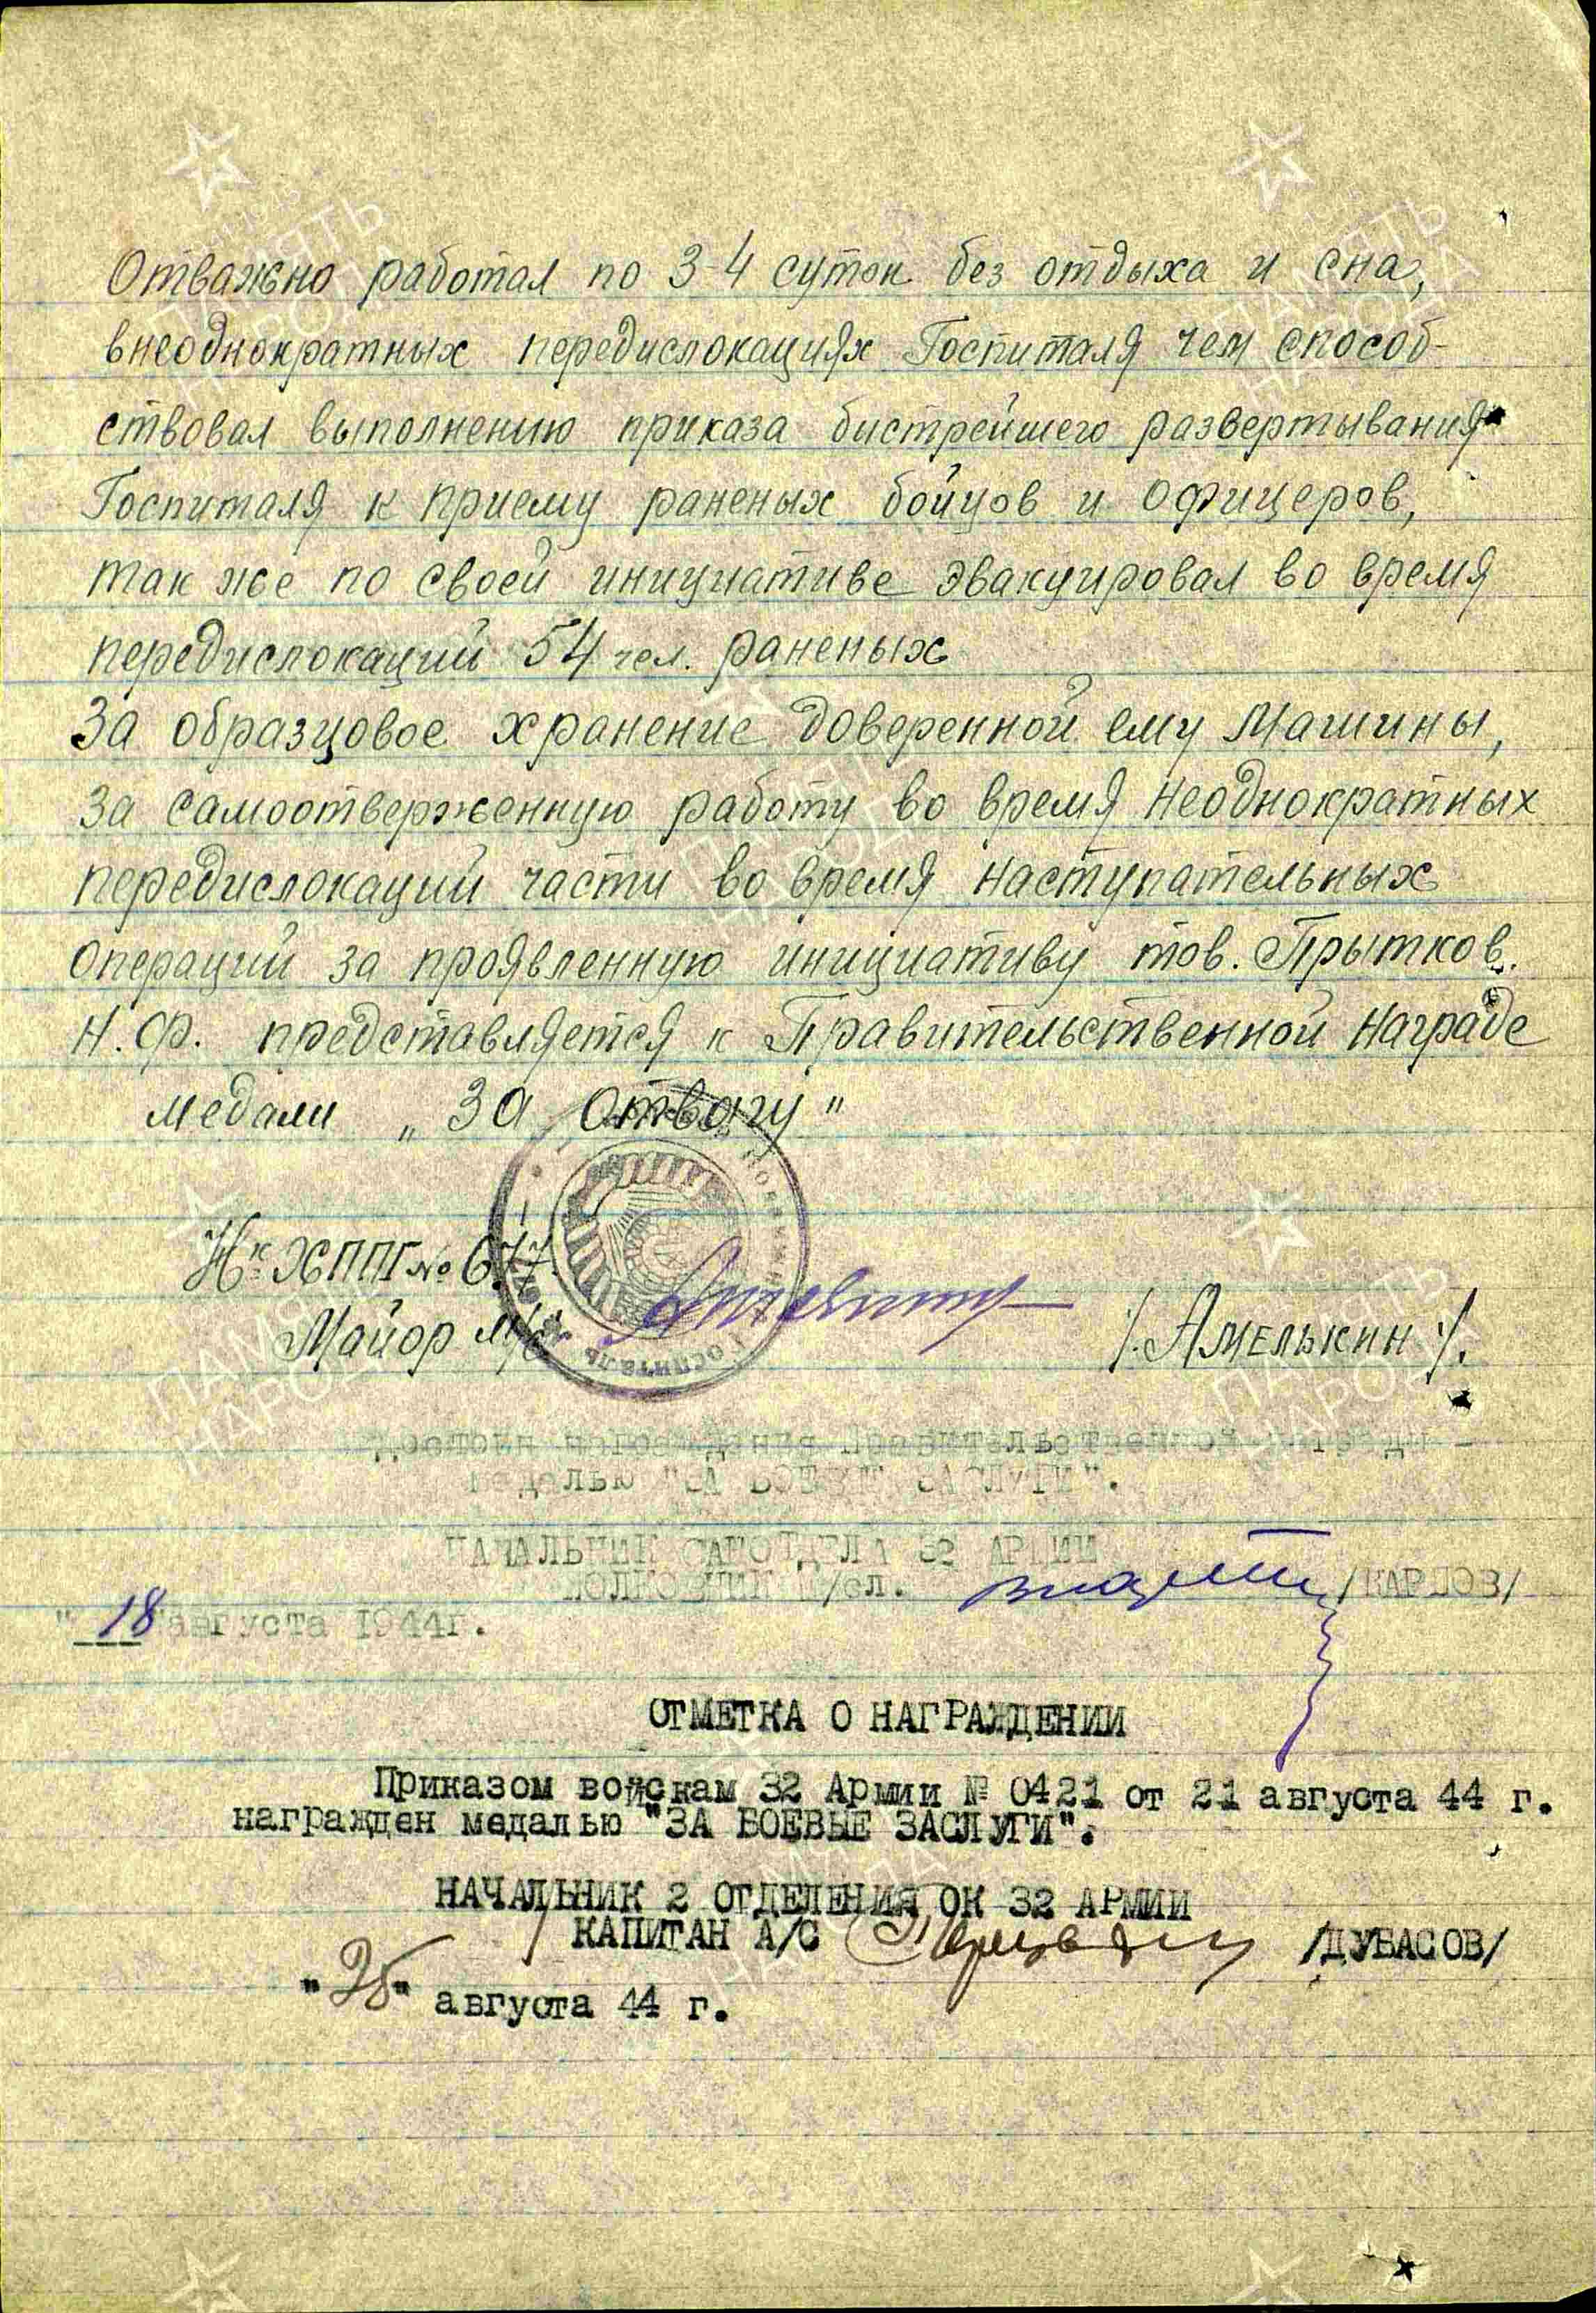 Отважно работал по 3-4 суток без отдыха и сна,
внеоднократных передислокациях Госпиталя чем способ-
ствовал выполнению приказа бистрейшего развертывания
Госпиталя к приему раненых бойцов и офицеров,
так же по своей инициативе эвакуировал во время
передислокаций 54 чел. раненых
За образцовое хранение доверенной ему машины,
за самоотверженную работу во время неоднократных
передислокаций части во время наступательных
операций за проявленную инициативу тов. Прытков.
Н.Ф. представляется к Правительственной награде
медали „За отвагу"
Нк ХППГ № 677
Майор м/с /.Амелькин/.
Госпиталь
Достоин награждения правительственной награды -
медалью "ЗА БОЕВЫЕ ЗАСЛУГИ".
НАЧАЛЬНИК САНОТДЕЛА 32 АРМИИ
ПОЛКОВНИК М/сл. /КАРПОВ/
"18" августа 1944г.
ОТМЕТКА О НАГРАЖДЕНИИ
Приказом войскам 32 Армии № 0421 от 21 августа 44 г.
награжден медалью "ЗА БОЕВЫЕ ЗАСЛУГИ".
НАЧАЛЬНИК 2 ОТДЕЛЕНИЯ ОК 32 АРМИИ
КАПИТАН А/С /ДУБАСОВ/
"26" августа 44 г.
ПАМЯТЬ
НАРОДА